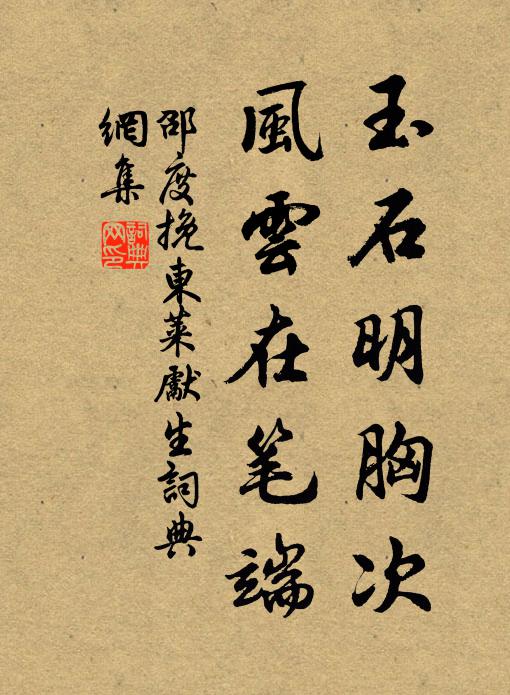 玉石明胸次
風雲在笔端
邵度挽東萊獻生詞典
網集
詞典
网印